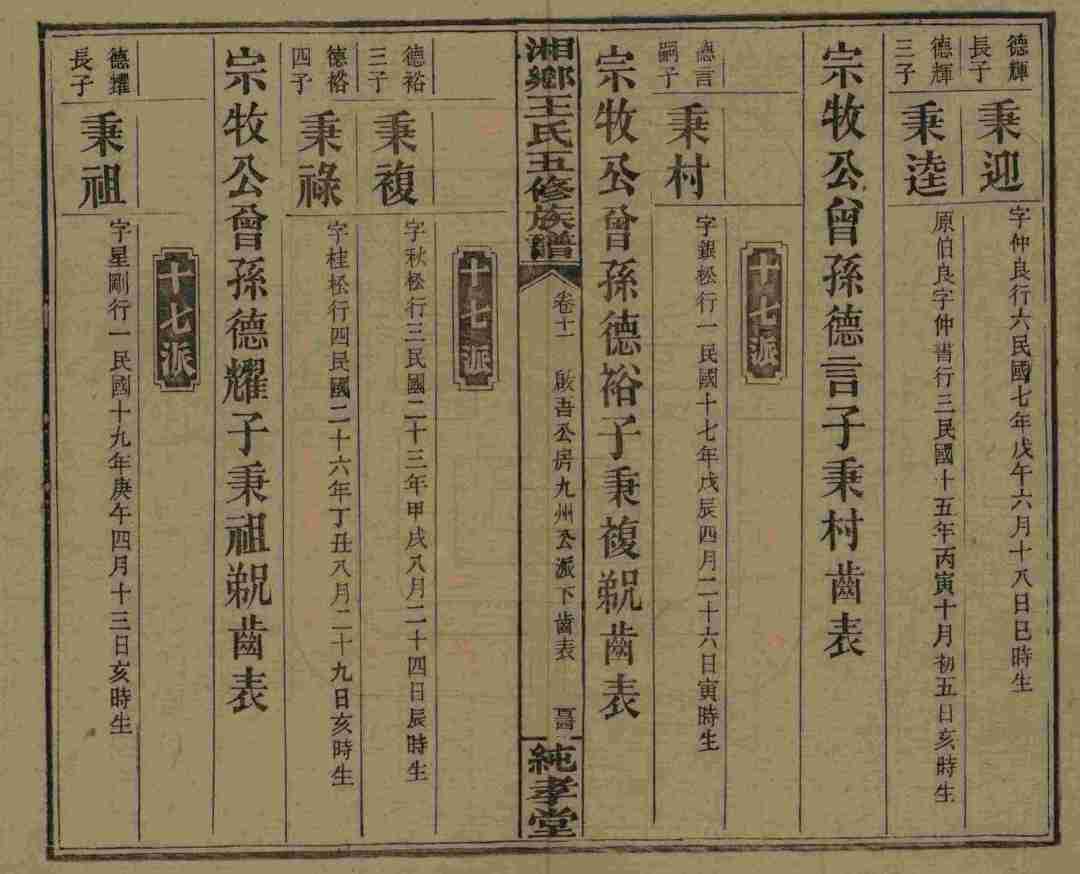 德輝
長子
秉迎
字仲良行六民國七年戊午六月十八日巳時生
德輝
三子
秉逵
原伯良字仲書行三民國十五年丙寅十月初五日亥時生
宗牧公曾孫德言子秉村齒表
十七派
德言
嗣子
秉村
字銀松行一民國十七年戊辰四月二十六日寅時生
宗牧公曾孫德裕子秉複貎齒表
湘鄉王氏五修族譜
卷十一
啟吾公房九州公派下齒表
純孝堂
十七派
德裕
三子
秉複
字秋松行三民國二十三年甲戌八月二十四日辰時生
德裕
四子
秉祿
字桂松行四民國二十六年丁丑八月二十九日亥時生
宗牧公曾孫德耀子秉祖貎齒表
十七派
德耀
長子
秉祖
字星剛行一民國十九年庚午四月十三日亥時生